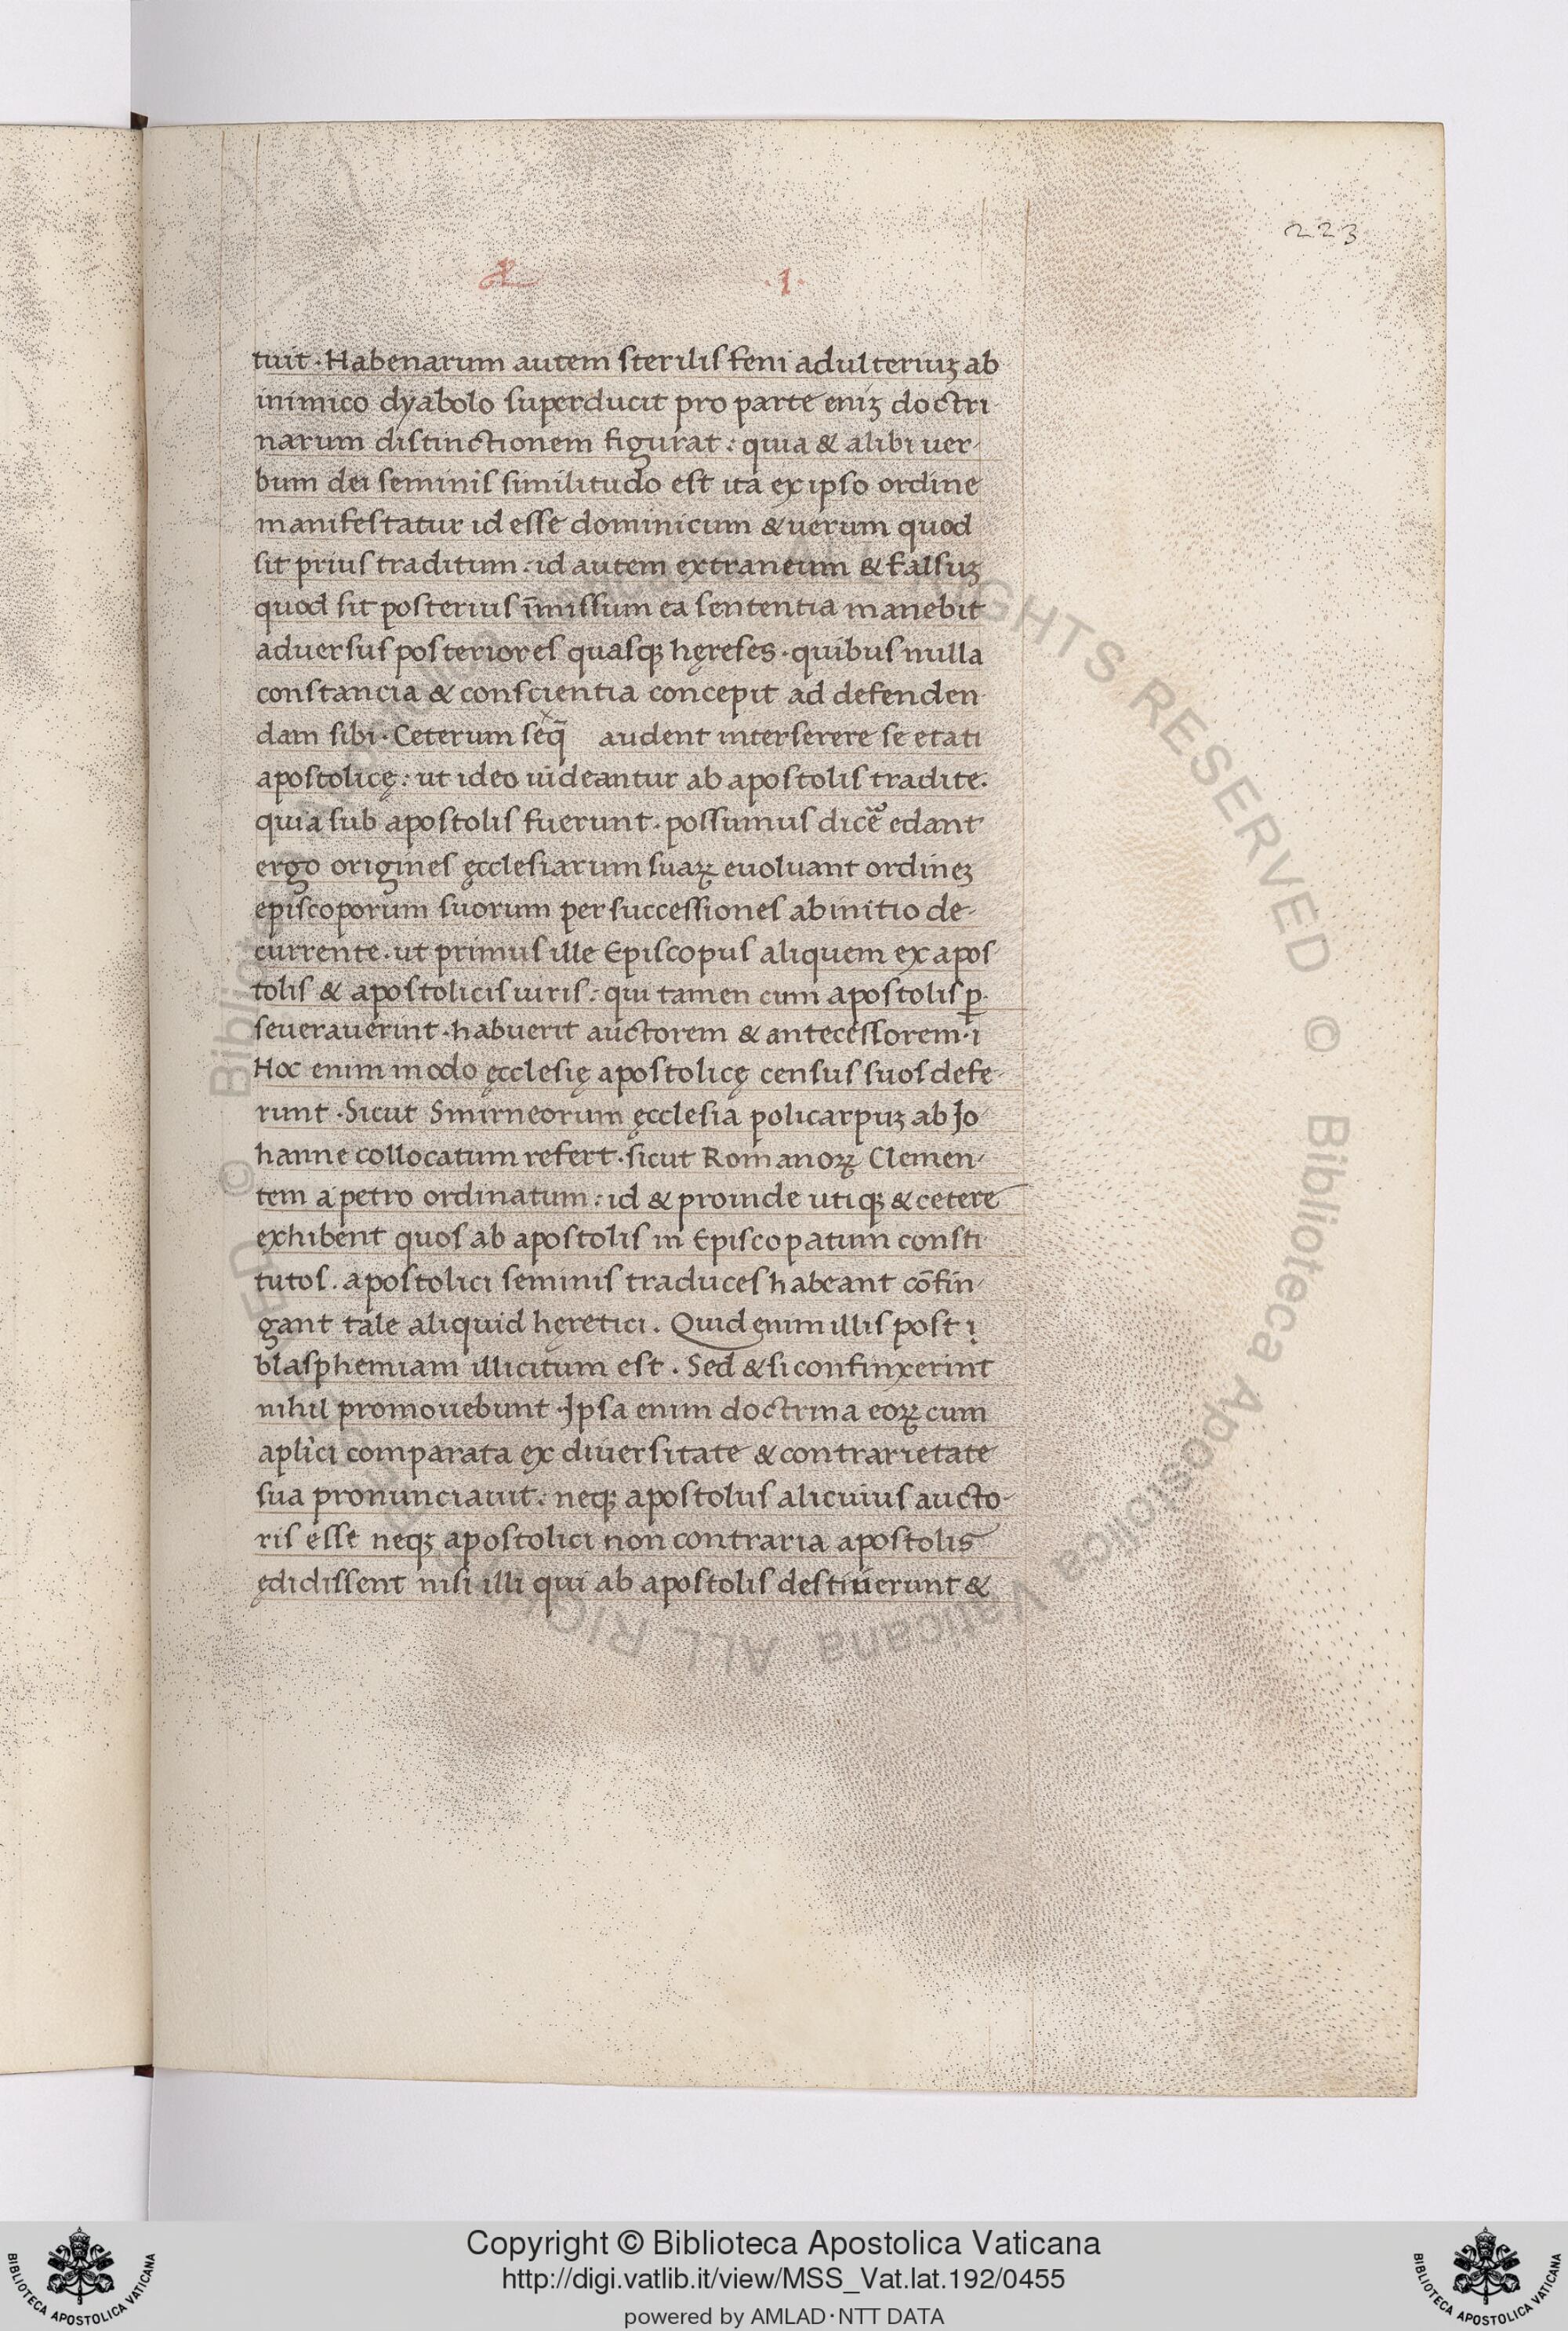 223
.1.
tuit · Habenarum autem sterilis feni adulteriuʒ ab
inimico dyabolo superducit pro parte eniʒ doctri
narum distinctionem figurat : quia & alibi uer-
bum dei seminis similitudo est ita ex ipso ordine
manifestatur id esse dominicum & uerum quod
sit prius traditum : id autem extraneum & falsuʒ
quod sit posterius īmissum ea sententia manebit
aduersus posteriores quasqʒ hęreses · quibus nulla
constancia & conscientia concepit ad defenden
dam sibi · Ceterum seq̃ audent interserere se etati
apostolicę : ut ideo uideantur ab apostolis tradite.
quia sub apostolis fuerunt · possumus edant
ergo origines ęcclesiarum suaꝝ euoluant ordineʒ
episcoporum suorum per successiones ab initio de-
currente · ut primus ille Episcopus aliquem ex apos
tolis & apostolicis uiris : qui tamen cum apostolis ꝑ-
seuerauerint · habuerit auctorem & antecessorem · i
Hoc enim modo ęcclesię apostolicę census suos defe-
runt · Sicut Smirneorum ęcclesia policarpuʒ ab Jo
hanne collocatum refert · sicut Romanoꝝ Clemen-
tem a petro ordinatum : id & proinde utiqʒ & cetere
exhibent quos ab apostolis in Episcopatum consti
tutos . apostolici seminis traduces habeant cōfin-
gant tale aliquid hęretici . Quid enim illis post i
blasphemiam illicitum est . Sed & si confinxerint
nihil promouebunt · Jpsa enim doctrina eoꝝ cum
aplici comparata ex diuersitate & contrarietate
sua pronunciauit : neqʒ apostolus alicuius aucto-
ris esse neqʒ apostolici non contraria apostolis
ędidissent nisi illi qui ab apostolis destiuerunt &
© Biblioteca Apostolica Vaticana ALL RIGHTS RESERVED © Biblioteca Apostolica Vaticana ALL RIGHTS RESERVED
Copyright © Biblioteca Apostolica Vaticana
http://digi.vatlib.it/view/MSS_Vat.lat.192/0455
powered by AMLAD·NTT DATA
BIBLIOTECA APOSTOLICA VATICANA
BIBLIOTECA APOSTOLICA VATICANA